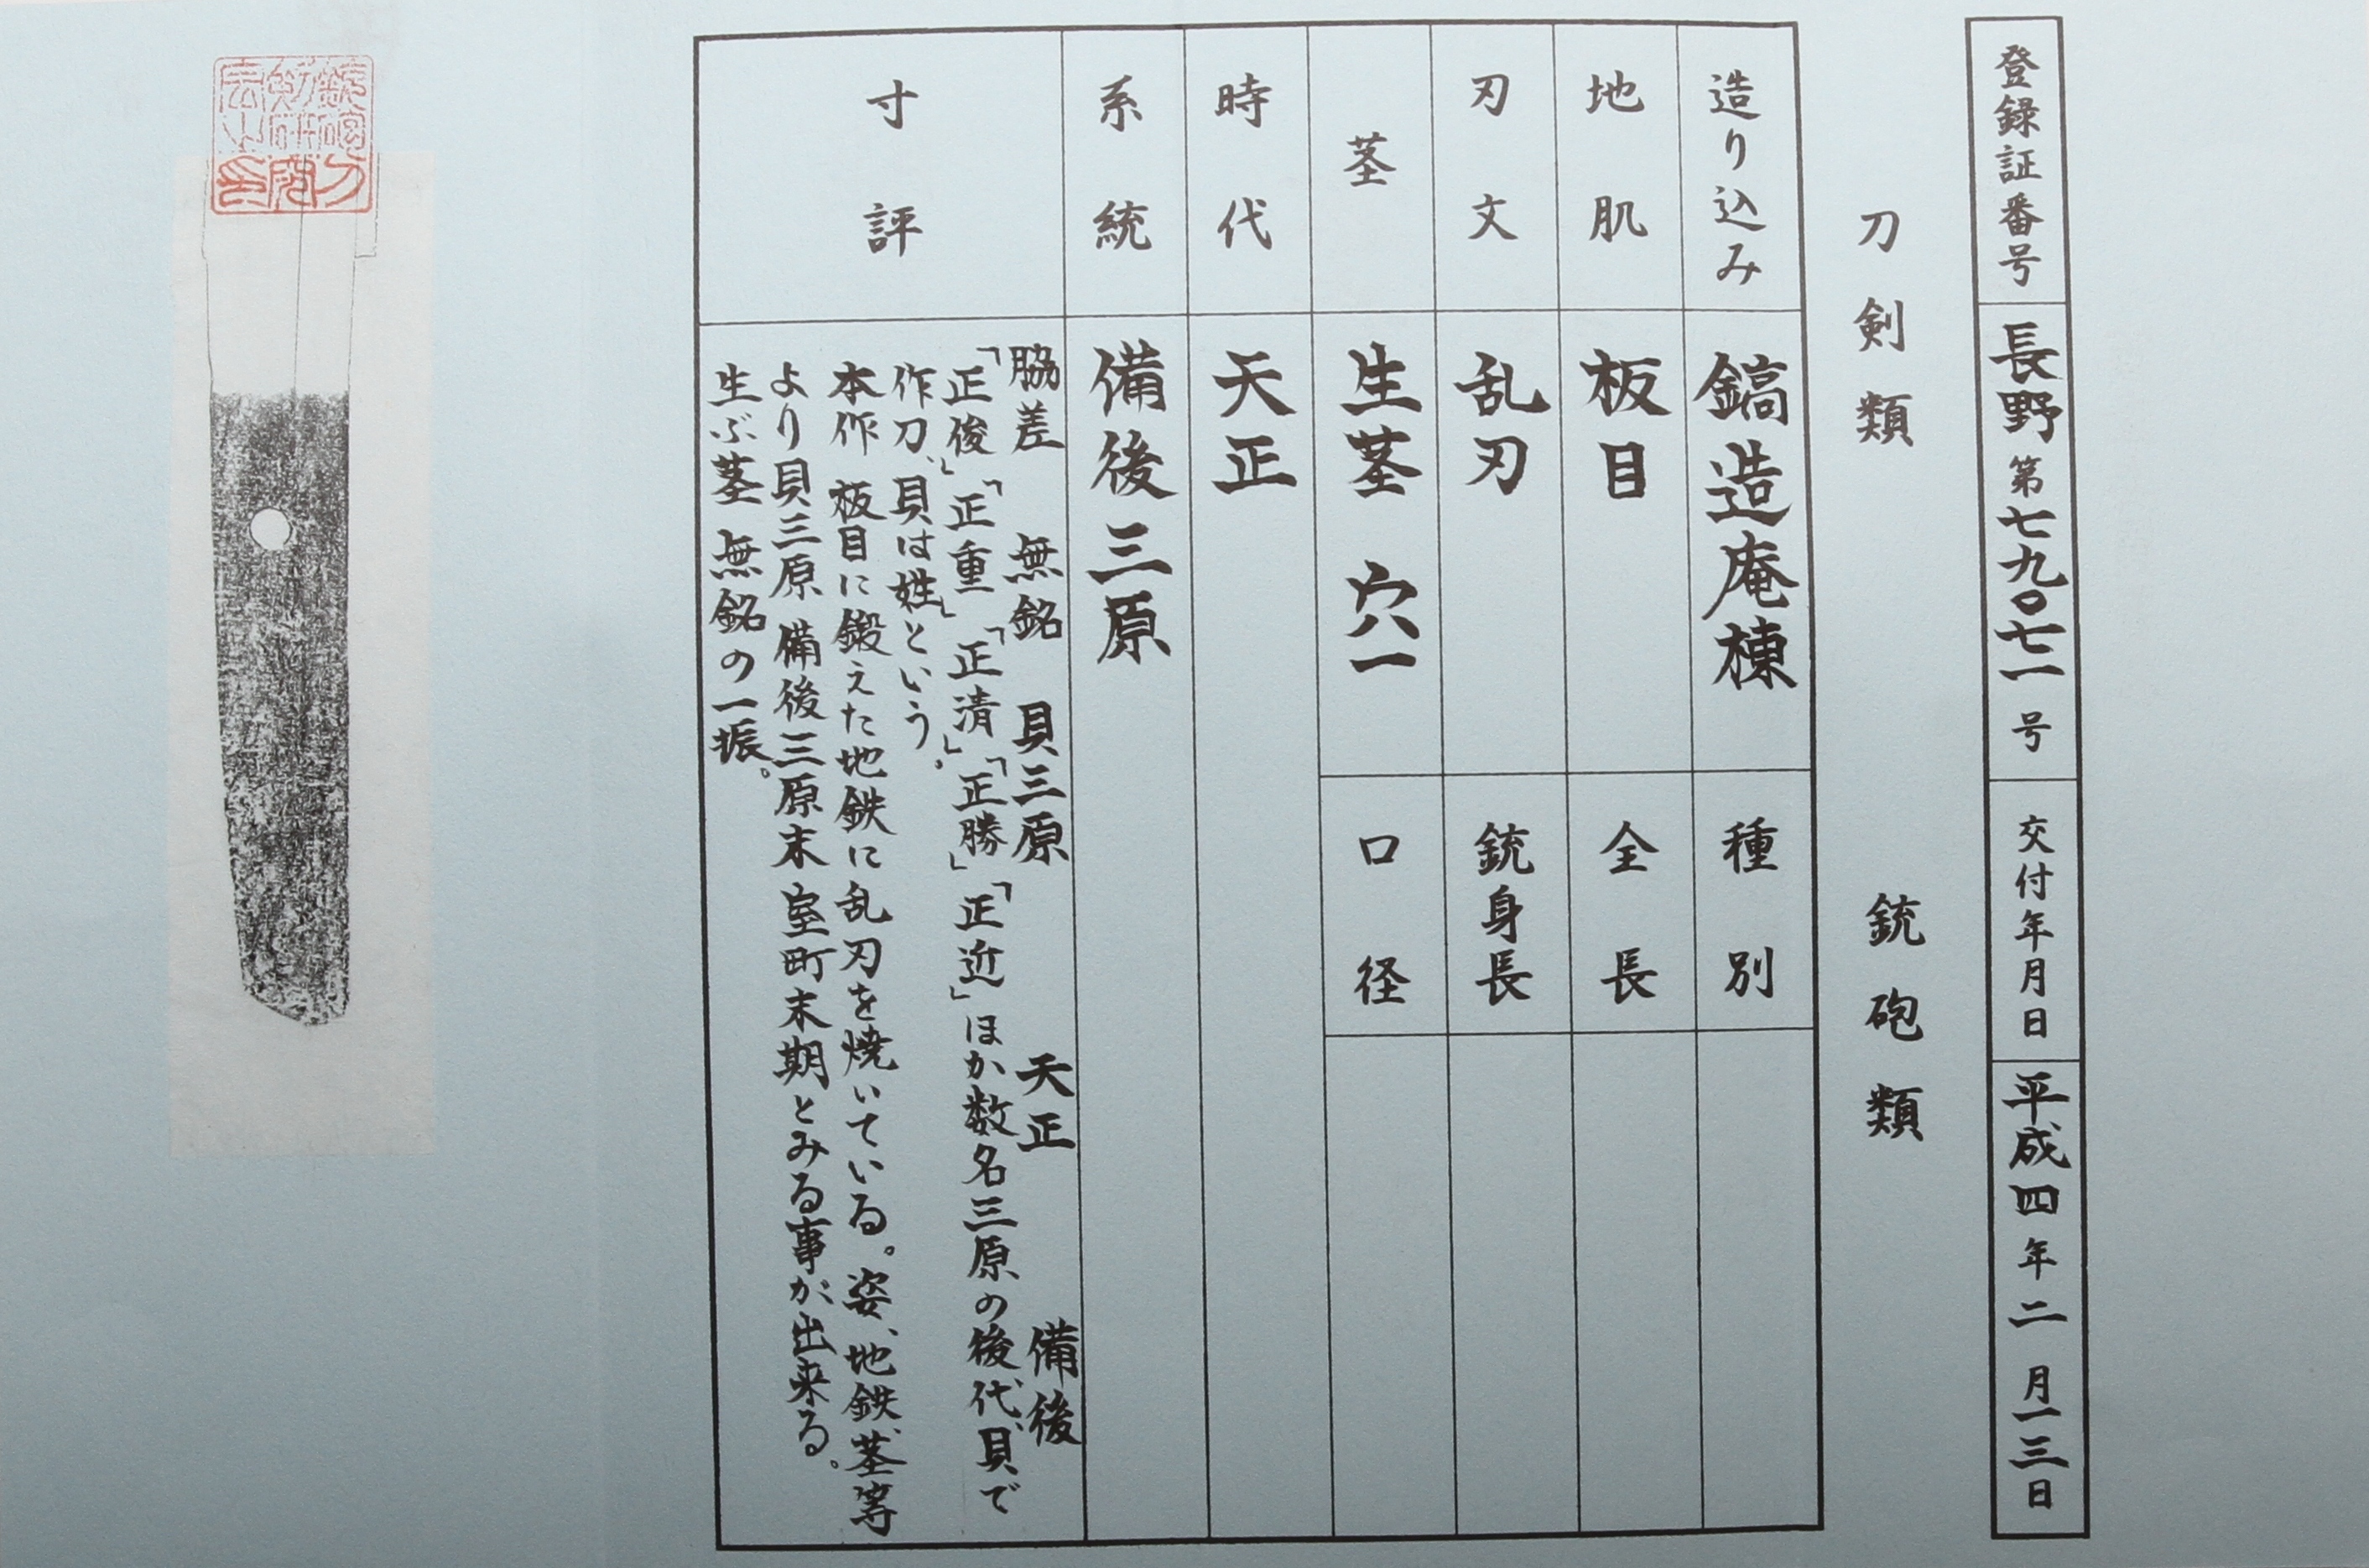 登録証番号 長野第七九〇七一号 交付年月日 平成四年二月一三日
刀剣類 銃砲類
造り込み 鎬造庵棟 種別
地肌 板目 全長
刃文 乱刃 銃身長
茎 生茎 穴一 口径
時代 天正
系統 備後三原
寸評
脇差 無銘 貝三原 天正 備後
「正俊」「正重」「正清」「正勝」「正近」ほか数名三原の後代、貝で
作刀、貝は姓という。
本作 板目に鍛えた地鉄に乱刃を焼いている。姿、地鉄、茎等
より貝三原 備後三原末 室町末期とみる事が出来る。
生ぶ茎 無銘の一振。